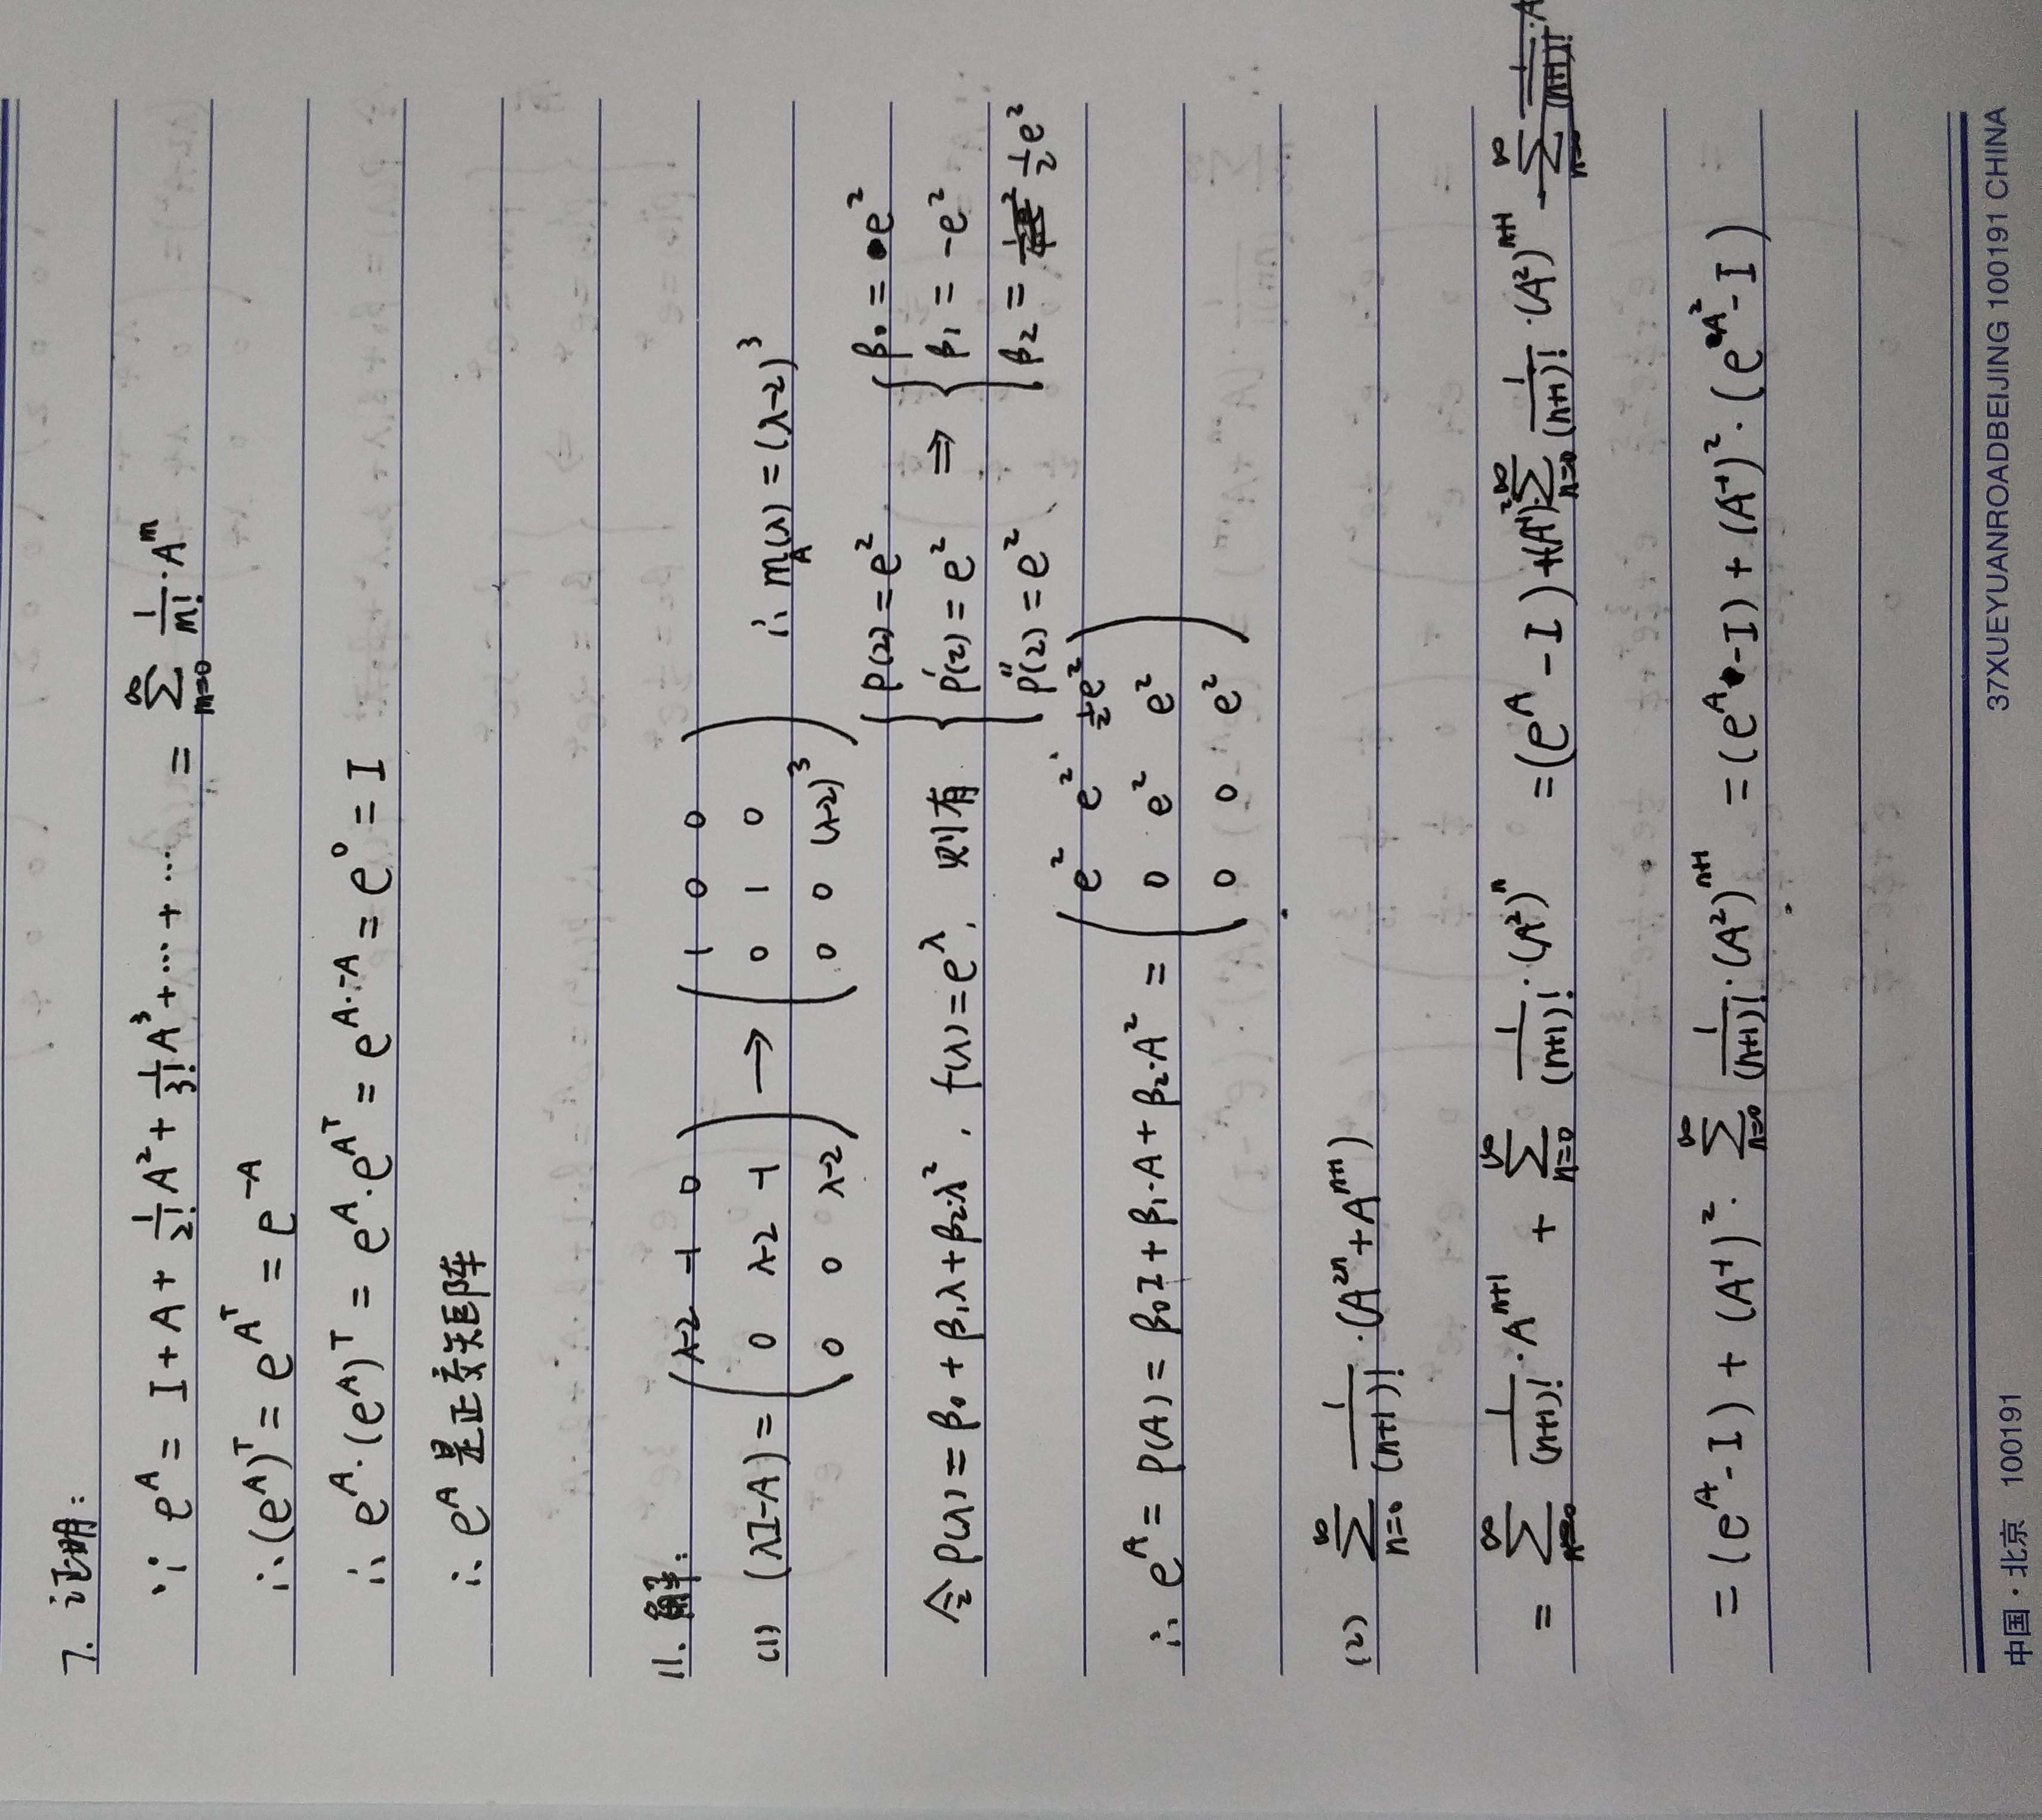 7. 证明:
∵ e^A = I + A + 1/2! A^2 + 1/3! A^3 + ⋯ + ⋯ = ∑_{m=0}^{∞} 1/m! · A^m
∴ (e^A)^T = e^{A^T} = e^{-A}
∴ e^A · (e^A)^T = e^A · e^{A^T} = e^{A·-A} = e^0 = I
∴ e^A 是正交矩阵
11. 解:
(1) (λI-A) = (λ-2 -1 0; 0 λ-2 -1; 0 0 λ-2) → (1 0 0; 0 1 0; 0 0 (λ-2)^3) ∴ m_A(λ) = (λ-2)^3
令 p(λ) = β0 + β1λ + β2·λ^2, f(λ) = e^λ, 则有 { p(2) = e^2; p'(2) = e^2; p''(2) = e^2 ⇒ { β0 = e^2; β1 = -e^2; β2 = 1/2 e^2
∴ e^A = p(A) = β0 I + β1·A + β2·A^2 = (e^2 e^2 1/2 e^2; 0 e^2 e^2; 0 0 e^2)
(2) ∑_{n=0}^{∞} 1/(n+1)! · (A^{2n} + A^{n+1})
= ∑_{n=0}^{∞} 1/(n+1)! · A^{n+1} + ∑_{n=0}^{∞} 1/(n+1)! · (A^2)^n = (e^A - I) + (A^{-1})^2 · ∑_{n=0}^{∞} 1/(n+1)! · (A^2)^{n+1}
= (e^A - I) + (A^{-1})^2 · ∑_{n=0}^{∞} 1/(n+1)! · (A^2)^{n+1} = (e^A - I) + (A^{-1})^2 · (e^{A^2} - I)
中国·北京 100191 37XUEYUANROADBEIJING 100191 CHINA